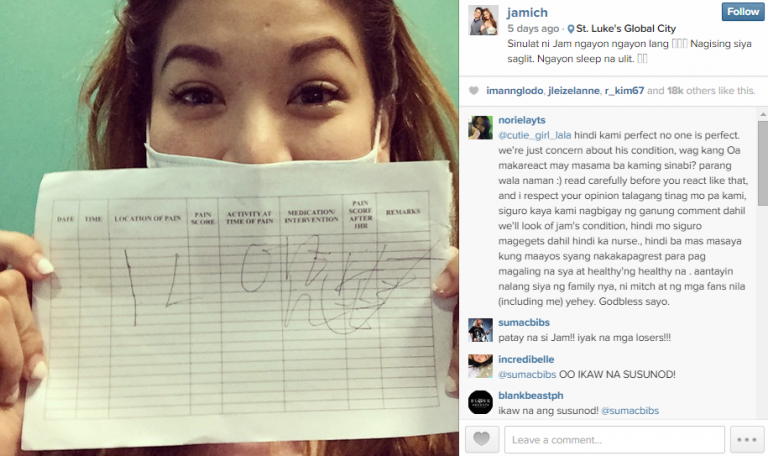 DATE
TIME
LOCATION OF PAIN
PAIN
SCORE
ACTIVITY AT
TIME OF PAIN
MEDICATION/
INTERVENTION
PAIN
SCORE
AFTER
1HR
REMARKS
I L O
jamich
Follow
5 days ago · St. Luke's Global City
Sinulat ni Jam ngayon ngayon lang Nagising siya
saglit. Ngayon sleep na ulit.
imannglodo, jleizelanne, r_kim67 and 18k others like this.
norielayts
@cutie_girl_lala hindi kami perfect no one is perfect.
we're just concern about his condition, wag kang Oa
makareact may masama ba kaming sinabi? parang
wala naman :) read carefully before you react like that,
and i respect your opinion talagang tinag mo pa kami,
siguro kaya kami nagbigay ng ganung comment dahil
we'll look of jam's condition, hindi mo siguro
magegets dahil hindi ka nurse., hindi ba mas masaya
kung maayos syang nakakapagrest para pag
magaling na sya at healthy'ng healthy na . aantayin
nalang siya ng family nya, ni mitch at ng mga fans nila
(including me) yehey. Godbless sayo.
sumacbibs
patay na si Jam!! iyak na mga losers!!!
incredibelle
@sumacbibs OO IKAW NA SUSUNOD!
blankbeastph
ikaw na ang susunod! @sumacbibs
Leave a comment...